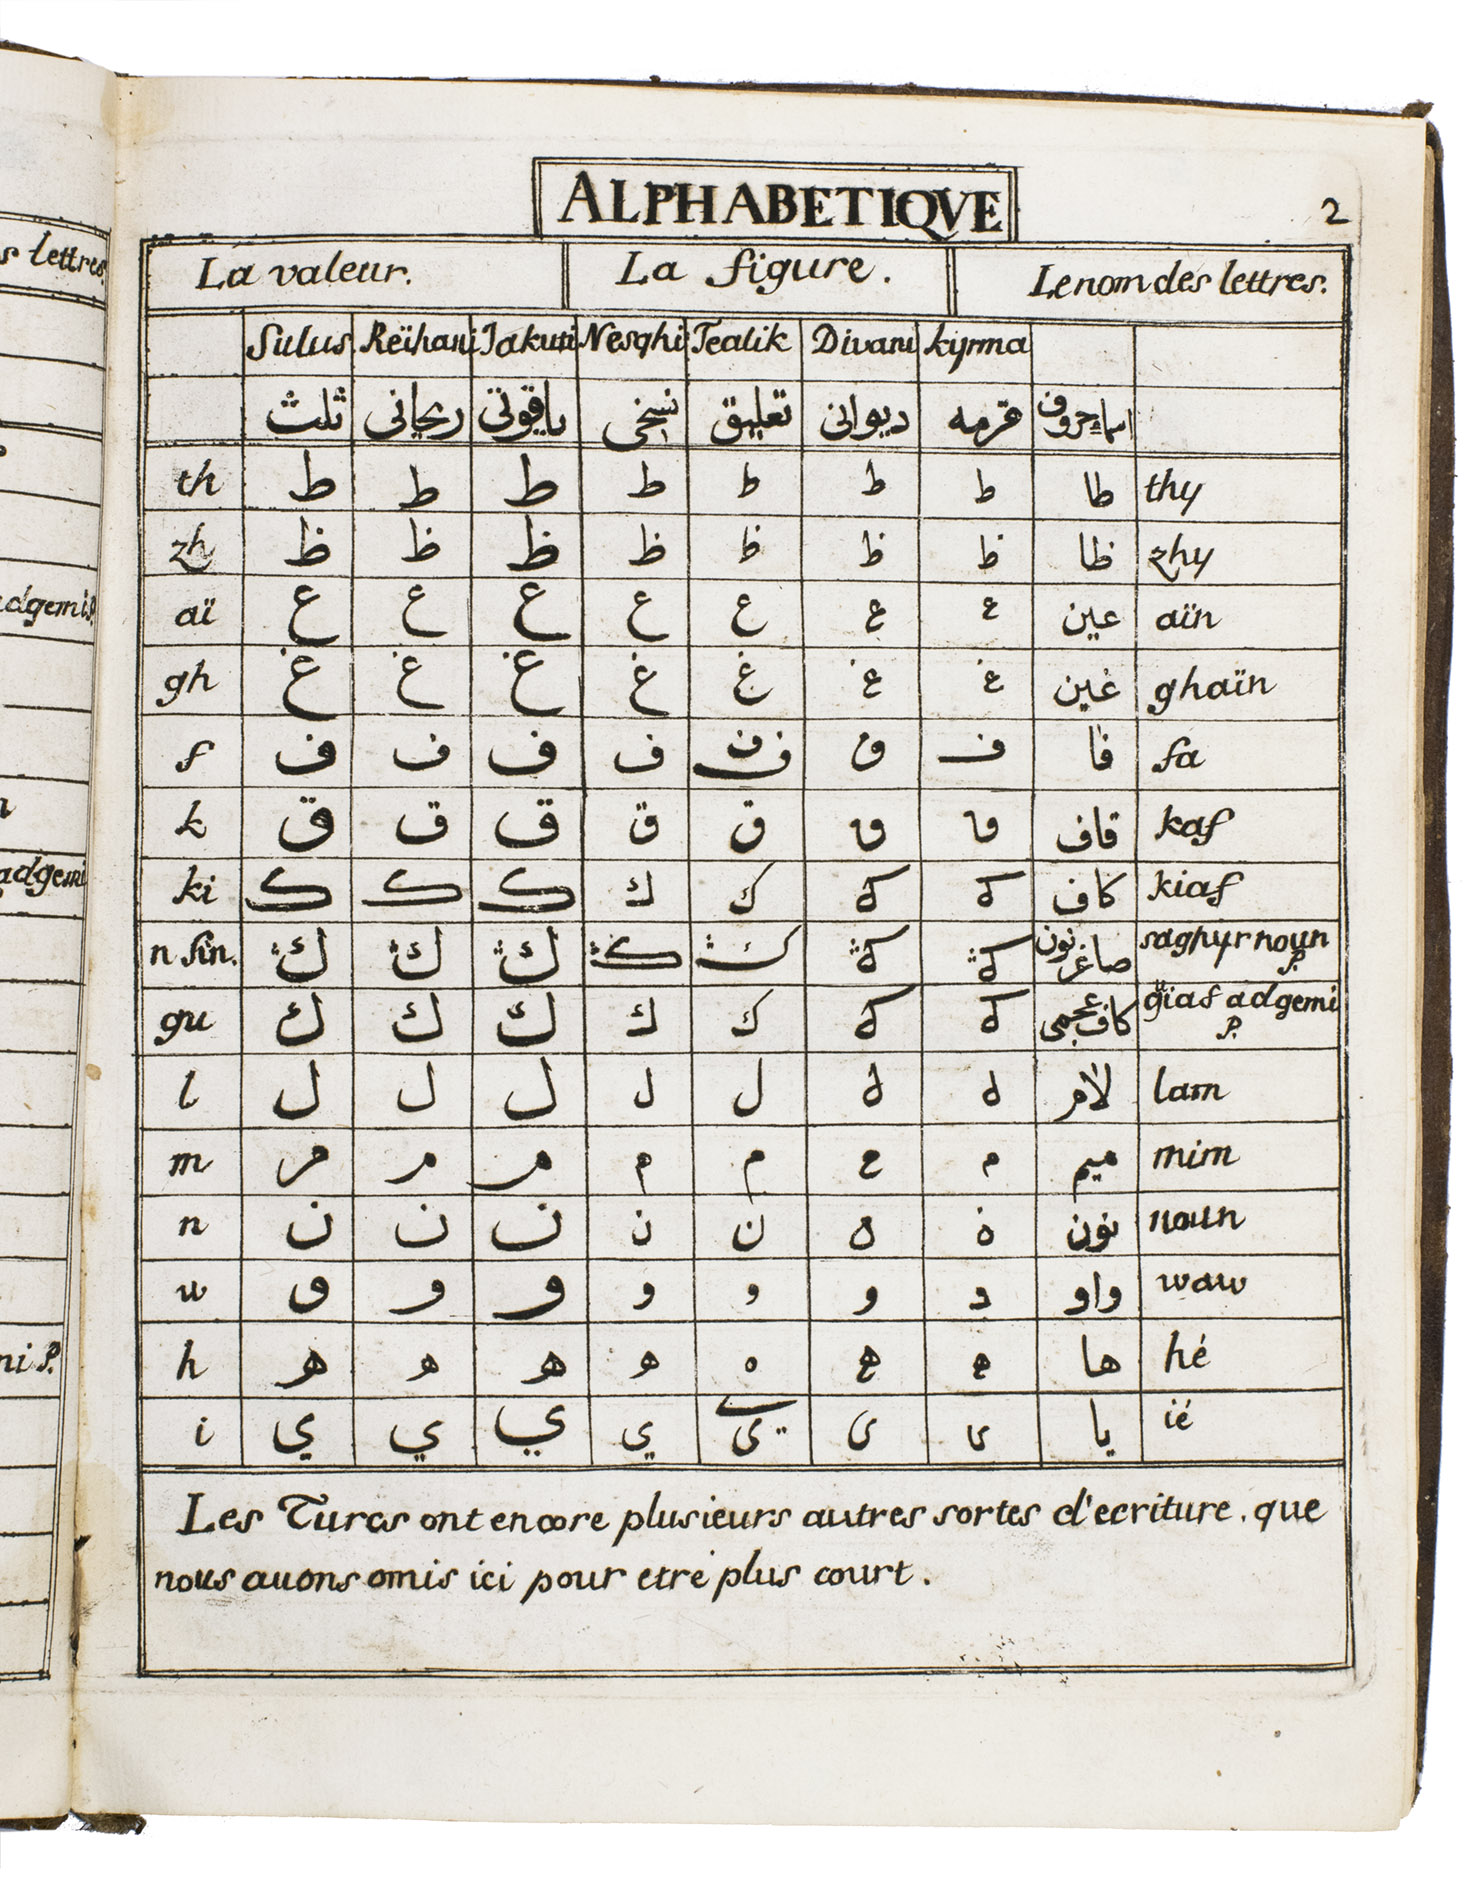 s lettres.
adgemi P.
adgemi
ni P.
ALPHABETIQVE
2
La valeur. La figure. Le nom des lettres.
Sulus Reïhani Jakuti Nesqhi Tealik Divani kyrma
ثلث ريحانى ياقوتى نسخى تعليق ديوانى قرمه اسماء حروف
th ط ط ط ط ط ط ط طا thy
zh ظ ظ ظ ظ ظ ظ ظ ظا zhy
aï ع ع ع ع ع ع ع عين aïn
gh غ غ غ غ غ غ غ غين ghaïn
f ف ف ف ف ف ف ف ف فا fa
k ق ق ق ق ق ق ق قاف kaf
ki ك ك ك ك ك ك ك كاف kiaf
n fin. ڭ ڭ ڭ ڭ ڭ ڭ ڭ صاغر نون saghyr noun P.
gu ك ك ك ك ك ك ك كاف عجمى gïaf adgemi P.
l ل ل ل ل ل ل ل لام lam
m م م م م م م م ميم mim
n ن ن ن ن ن ن ن نون noun
w و و و و و و و واو waw
h ه ه ه ه ه ه ه ها hé
i ي ي ي ي ى ے ى ى يا ié
Les Turcs ont encore plusieurs autres sortes d'ecriture. que
nous auons omis ici pour etre plus court.